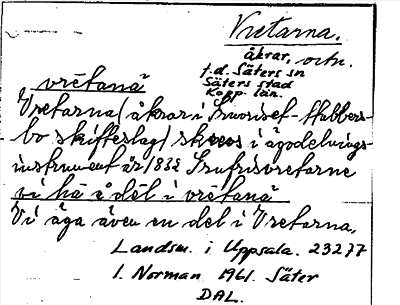 Vretarna,
åkrar, och
f.d. Säters sn
Säters stad
Kopp. län.
vrētanä
Vretarna (åkrar i Smoriset-Stubbers-
bo skifteslag) skrevs i ägodelnings-
instrument år 1832
vi hā ō dēl i vrētanä
Vi äga även en del i Vretarna.
Landsm. i Uppsala. 23277
I. Norman 1961. Säter
DAL.